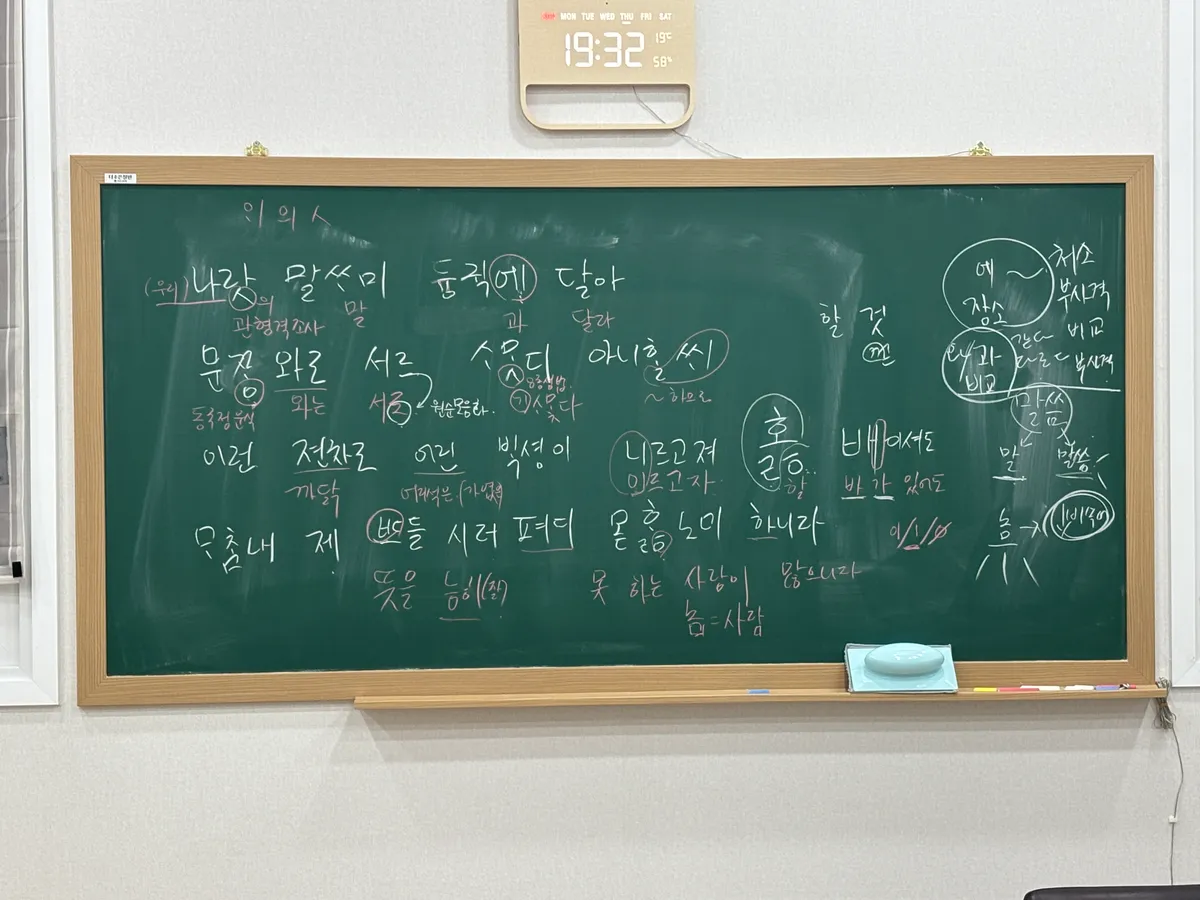 MON TUE WED THU FRI SAT
19:32 19℃
58%
ᄋᆡ 의 ㅅ
(우리) 나랏 말ᄊᆞ미 듕귁에 달아
의
관형격조사 말 과 달라
문ᄍᆞᆼ 와로 서르 ᄉᆞᄆᆞᆺ디 아니ᄒᆞᆯ씨
동국정운식 와는 서로 원순모음화. 8종성법. ~하므로
기 ᄉᆞᄆᆞᆾ다
이런 젼ᄎᆞ로 어린 ᄇᆡᆨ셩이 니르고져 호ᇙ 배 이셔도
까닭 어리석은 이르고자 할 바가 있어도
ᄆᆞᄎᆞᆷ내 제 ᄠᅳ들 시러 펴디 몯ᄒᆞᇙ 노미 하니라
뜻을 능히(잘) 못 하는 사람이 많으니라
놈=사람
이/ㅣ/∅
할 것
에 ~ 처소
장소 부사격
와/과 같다 비교
비교 다르다 부사격
말씀
말 말씀
놈 →